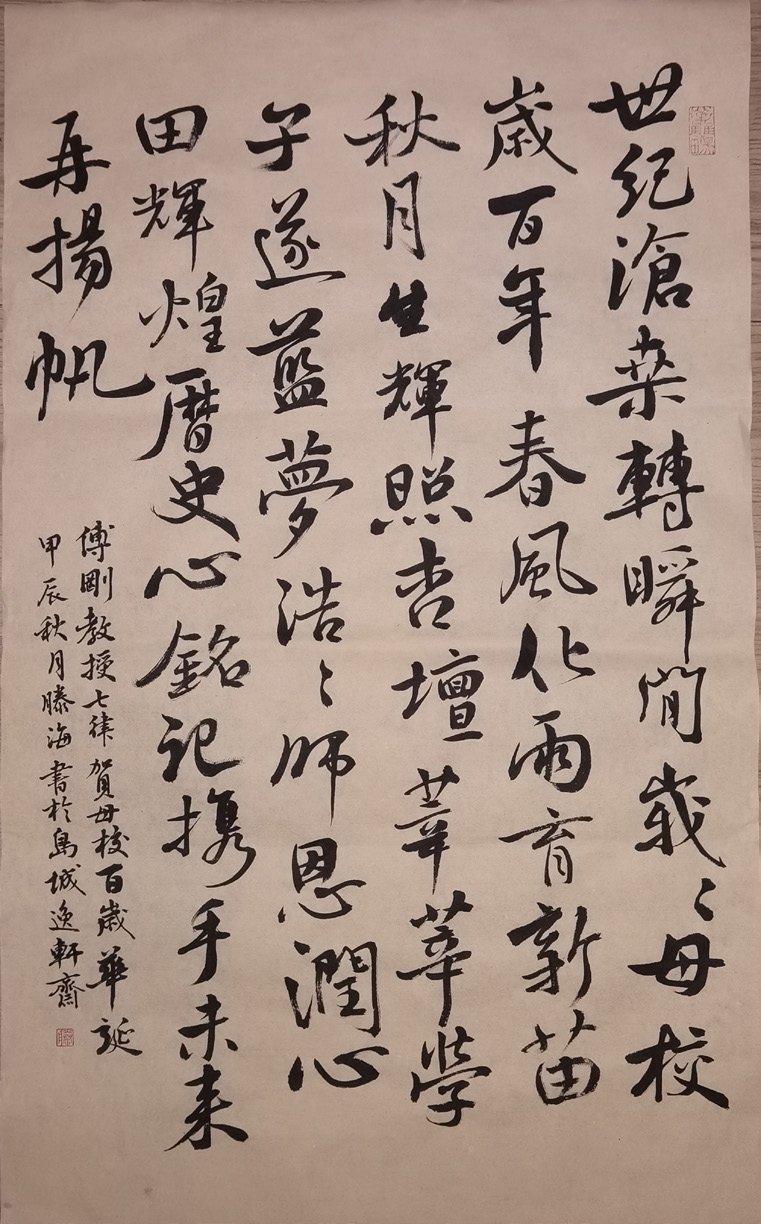 世紀滄桑轉瞬間峩〻母校
歲百年春風化雨育新苗
秋月生輝照杏壇莘莘學
子遂藍夢浩〻師恩潤心
田輝煌曆史心銘記携手未来
再揚帆
傅剛教授七律賀母校百歲華誕
甲辰秋月滕海書於島城逸軒齋